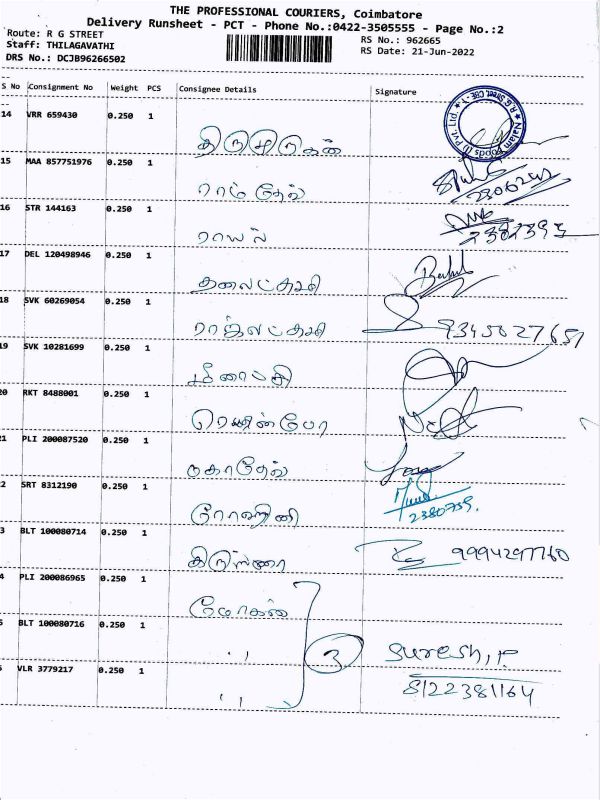 THE PROFESSIONAL COURIERS, Coimbatore
Delivery Runsheet - PCT - Phone No.:0422-3505555 - Page No.:2
Route: R G STREET
RS No.: 962665
Staff: THILAGAVATHI
RS Date: 21-Jun-2022
DRS No.: DCJB96266502
S No Consignment No Weight PCS Consignee Details Signature
14 VRR 659430 0.250 1
திருமுருகன்
15 MAA 857751976 0.250 1
ராம்தேவ்
16 STR 144163 0.250 1
ராயல்
17 DEL 120498946 0.250 1
18 SVK 60269054 0.250 1
ராஜலட்சுமி
19 SVK 10281699 0.250 1
20 RKT 8488001 0.250 1
ரெயின்போ
21 PLI 200087520 0.250 1
2 SRT 8312190 0.250 1
2380739.
3 BLT 100080714 0.250 1
9994297760
4 PLI 200086965 0.250 1
மோகன்
5 BLT 100080716 0.250 1
" 3 Suresh, P
VLR 3779217 0.250 1
" 8122381164